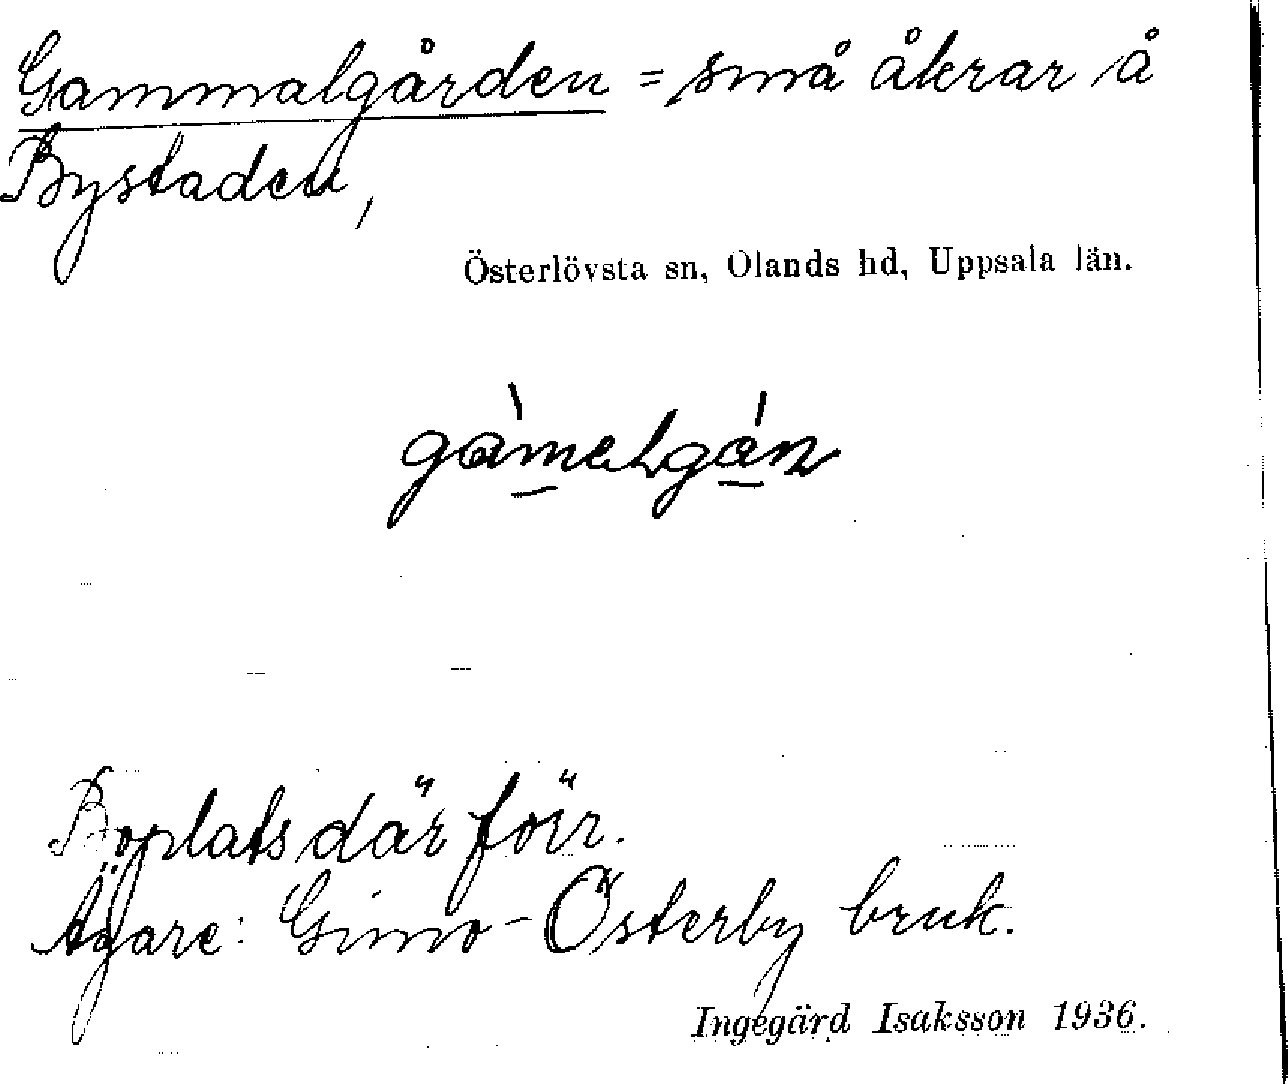 Gammalgården = små åkrar å
Bystaden,
Österlövsta sn, Olands hd, Uppsala län.
Boplats där förr.
Ägare: Gimo-Österby bruk.
Ingegärd Isaksson 1936.